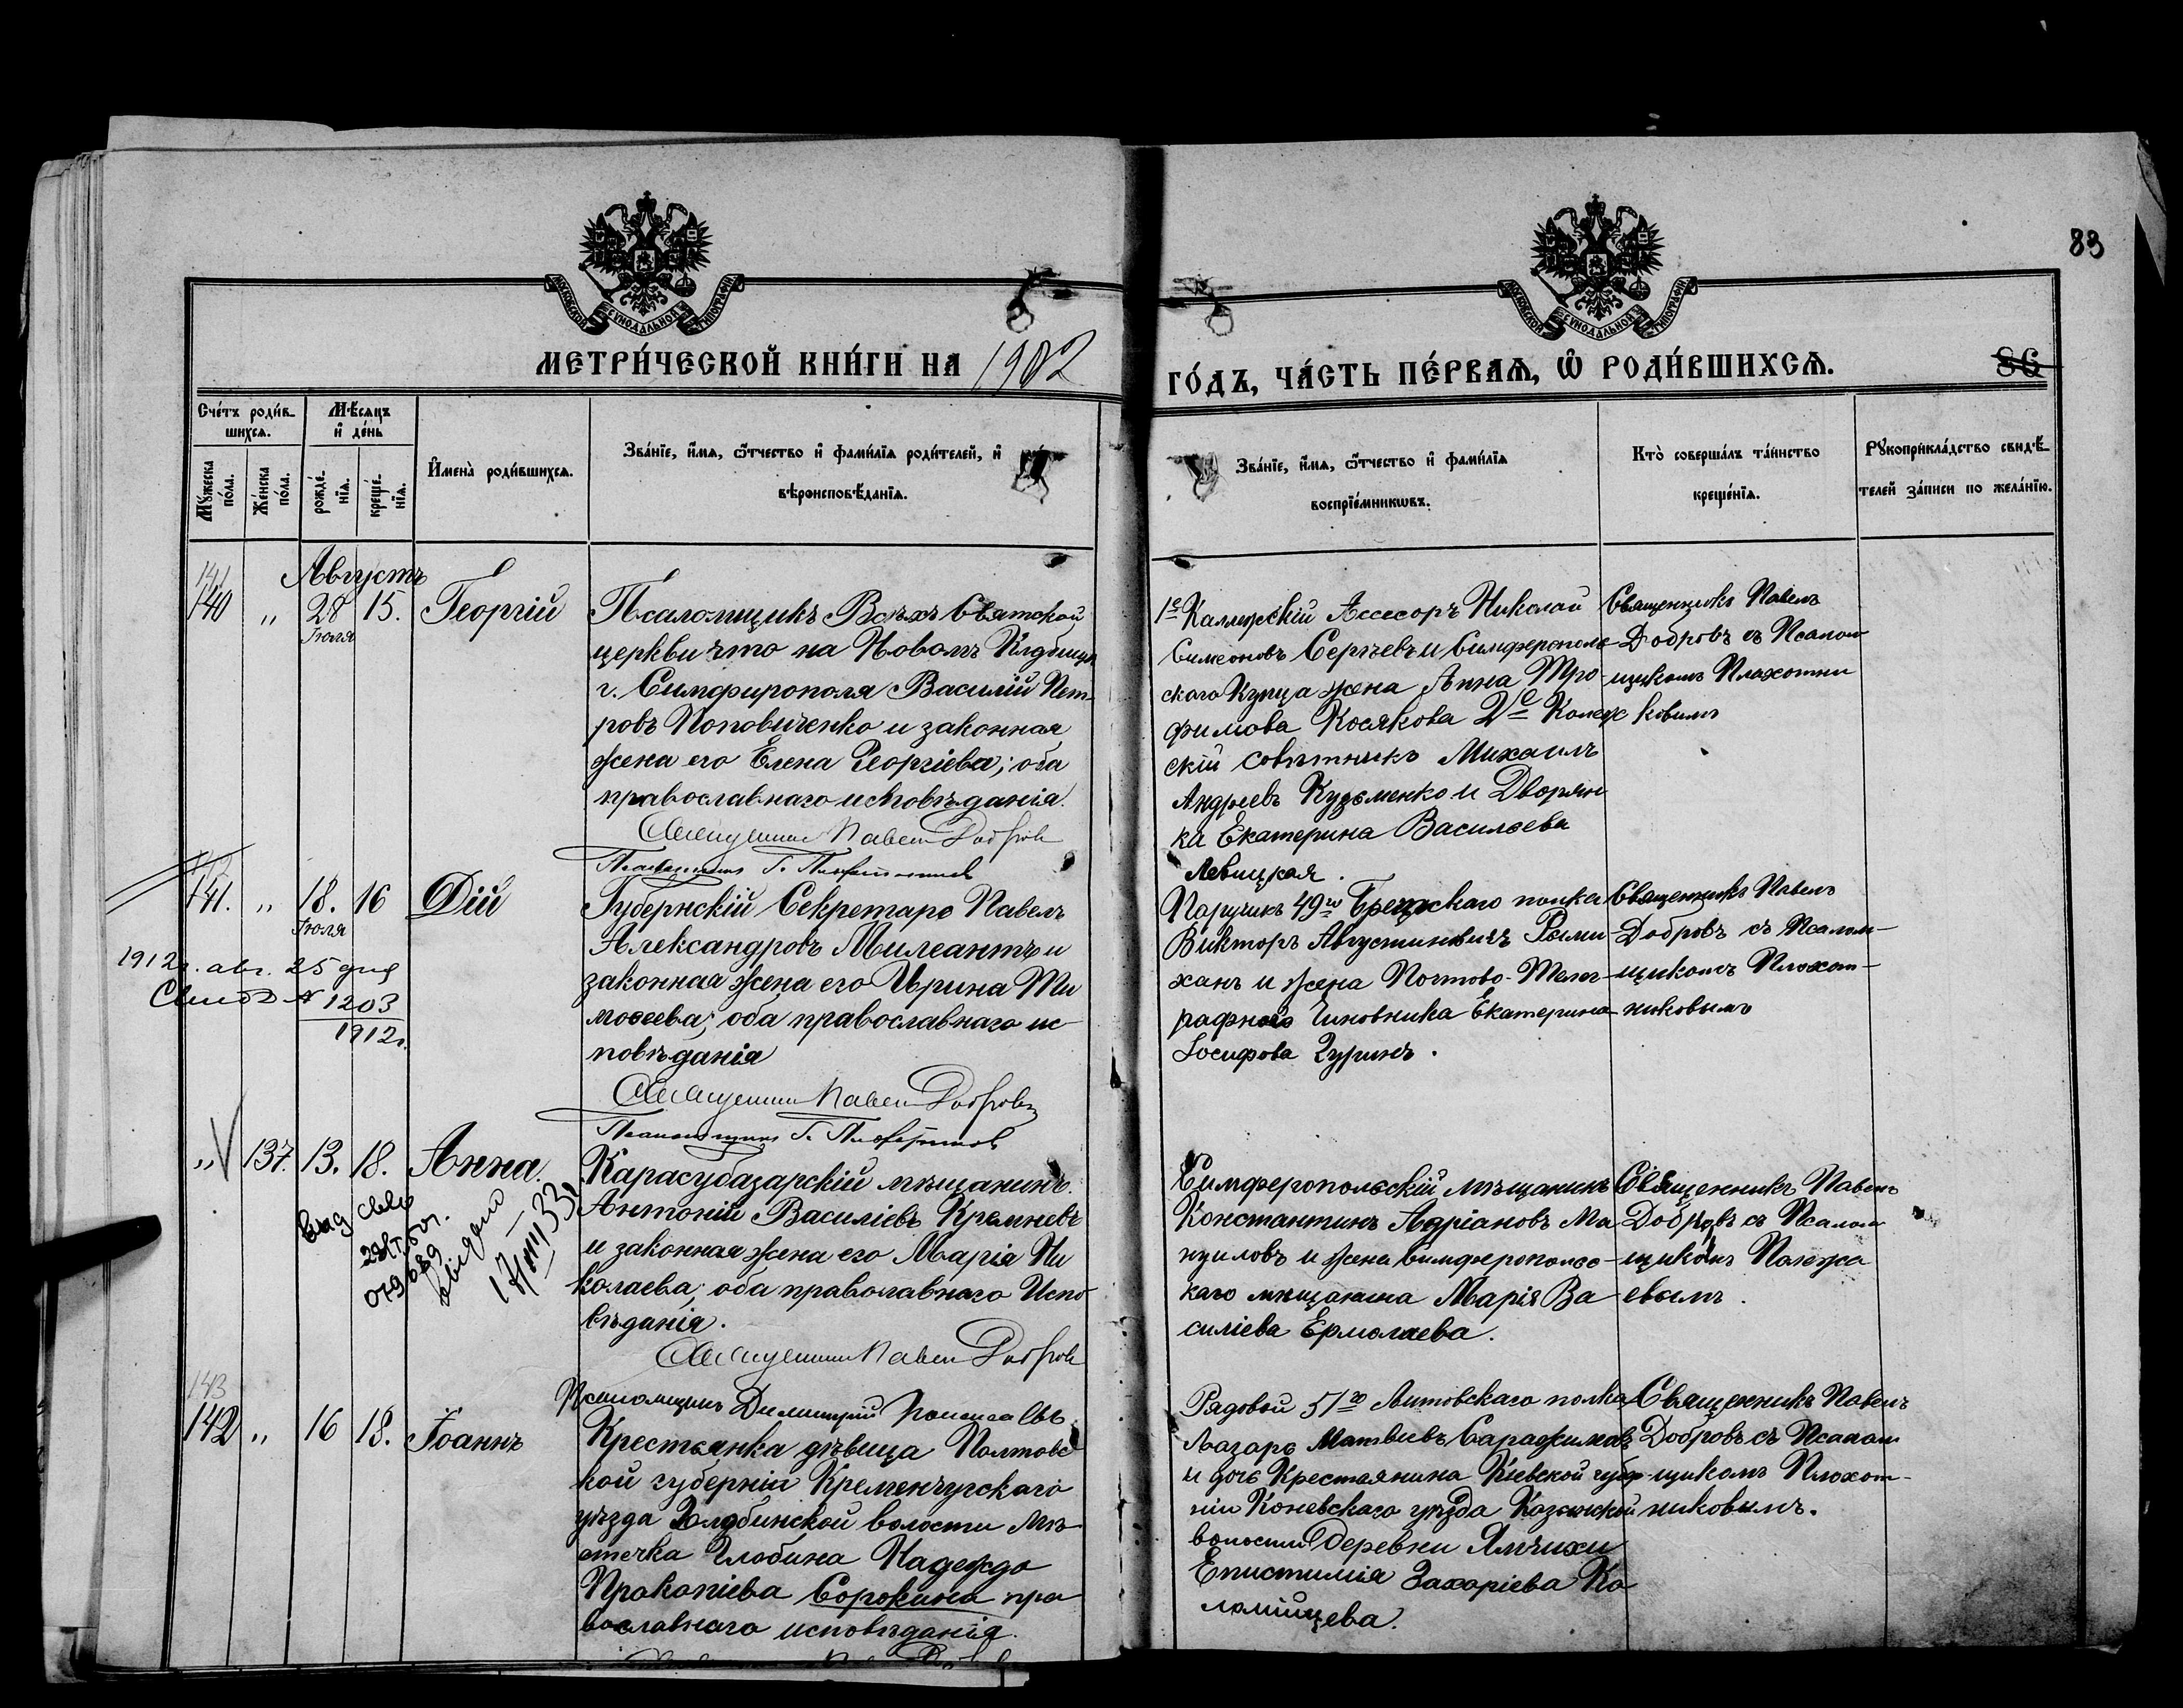 83
МОСКОВСКОЙ СѴНОДАЛЬНОЙ ТИПОГРАФІИ
МОСКОВСКОЙ СѴНОДАЛЬНОЙ ТИПОГРАФІИ
МЕТРИ́ЧЕСКОЙ КНИ́ГИ НА 1902
ГО́ДЪ, ЧА́СТЬ ПЕ́РВАѦ, Ѡ҆ РОДИ́ВШИХСѦ.
86
Сче́тъ роди́в-
шихсѧ.
Мѣ́сѧцъ
и҆ де́нь
Мꙋ́жеска
по́ла.
Же́нска
по́ла.
рожде́-
нїѧ.
креще́-
нїѧ.
И҆мена̀ роди́вшихсѧ.
Зва́нїе, и҆́мѧ, ѻ҆́тчество и҆ фами́лїѧ роди́телей, и҆
вѣроисповѣ́данїѧ.
Зва́нїе, и҆́мѧ, ѻ҆́тчество и҆ фами́лїѧ
воспрїе́мникѡвъ.
Кто̀ соверша́лъ та́инство
креще́нїѧ.
Рꙋкоприкла́дство свидѣ́-
телей за́писи по жела́нїю.
Августъ
141
140 " 28 15. Георгій
Іюля
Псаломщикъ Всѣхъ Святской
церкви что на Новомъ Кладбищѣ
г. Симфирополя Василій Пет-
ровъ Поповиченко и законная
жена его Елена Георгіева; оба
православнаго исповѣданія.
Священникъ Павелъ Добровъ
Псаломщикъ Г. Плохотниковъ
1е Каллежскій Ассесоръ Николай
Симеоновъ Сергѣевъ и Симферополь-
скаго Купца жена Анна Тро-
фимова Косякова 2е Колеж
скій совѣтникъ Михаилъ
Андреевъ Кузьменко и Дворян
ка Екатерина Васильева
Левицкая.
Священникъ Павелъ
Добровъ съ Псалом
щикомъ Плохотни
ковымъ
141. " 18. 16 Дій
Іюля
1912г. авг. 25 дня
№ 1203
1912г.
Губернскій Секретарь Павелъ
Александровъ Милеантъ и
законная жена его Ирина Ти
моѳеева; оба православнаго ис
повѣданія
Священникъ Павелъ Добровъ
Псаломщикъ Г. Плохотниковъ
Поручикъ 49го Брестскаго полка
Викторъ Августиновичъ
ханъ и жена Почтово-Телег-
рафнаго Чиновника Екатерина
Іосифова
Священникъ Павелъ
Добровъ съ Псалом-
щикомъ Плохот-
никовымъ
" 137. 13. 18. Анна.
выдано
Карасубазарскій мѣщанинъ
Антоній Василіевъ Кремневъ
и законная жена его Марія Ни
колаева; оба православнаго Испо
вѣданія.
Священникъ Павелъ Добровъ
Псаломщикъ Димитрій Полежаевъ
Симферопольскій мѣщанинъ
Константинъ Адріановъ Ма
нуиловъ и жена Симферопольс-
каго мѣщанина Марія Ва
силіева Ермолаева.
Священникъ Павелъ
Добровъ съ Псалом
щикомъ Полежа
евымъ.
143
142 " 16 18. Іоаннъ
Крестьянка дѣвица Полтовс
кой губерніи Кременчугскаго
уѣзда Глобинской волости Мѣ
стечка Глобина Надежда
Прокопіева Сорокина пра
вославнаго исповѣданія.
Рядовой 51го Литовскаго полка
Лазарь Матвѣевъ
и дочь Крестьянина Кіевской губер-
ніи Каневскаго уѣзда Козинской
волости Деревни Ямчихи
Епистимія Захаріева Ко
ломійцева.
Священникъ Павелъ
Добровъ съ Псалом
щикомъ Плохот-
никовымъ.